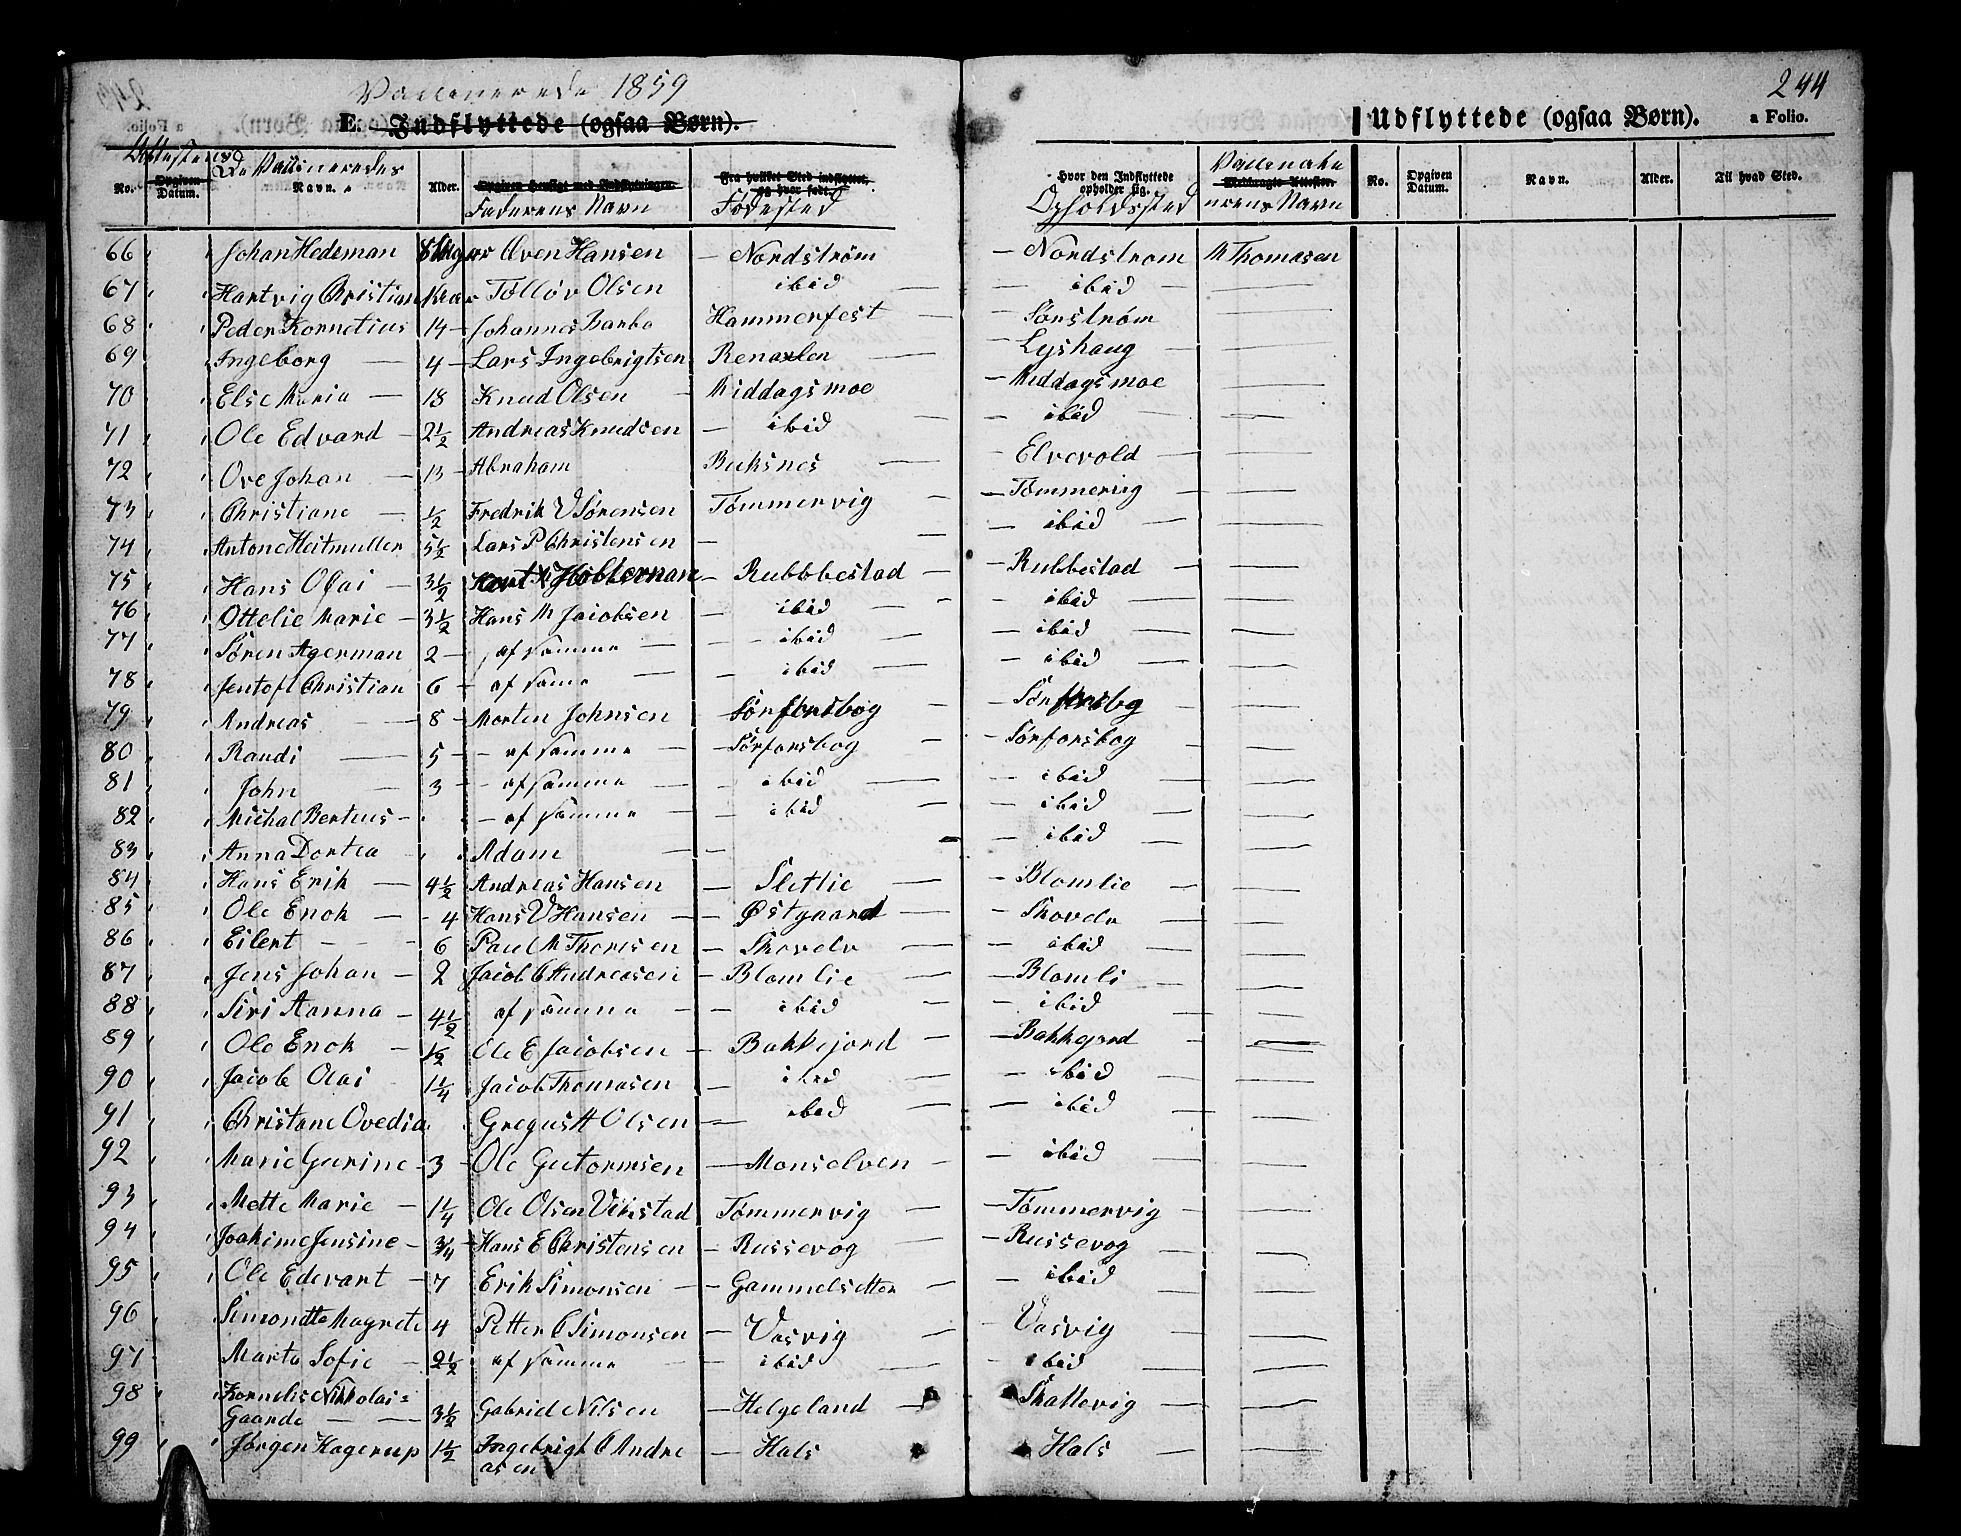 Vaccinerede 1859
244
E. Indflyttede (ogsaa Børn).
Udflyttede (ogsaa Børn). a Folio.
No. Opgiven Datum. De Vaccineredes Navn. Alder. Opgiven Hensigt med Indflytningen. Faderens Navn Fra hvilket Sted indflyttet, og hvor født. Fødested
Hvor den Indflyttede opholder sig. Opholdssted Medbragte Attester. Navn No. Opgiven Datum. Navn. Alder. Til hvad Sted.
66 Johan Hedeman Oven Hansen — Nordstrøm — Nordstrøm M Thomasen
67 Hartvig Christian Tølløv Olsen ibid — ibid —
68 Peder Kornelius 14 — Johannes Barbo Hammerfest — Sørstrøm —
69 Ingeborg — 4 — Lars Ingebrigtsen Renaxlen — Lyshaug —
70 Else Maria — 18 Knud Olsen — Middagsmoe — Middagsmoe —
71 Ole Edvard — 2½ Andreas Knudsen — ibid — ibid —
72 Ove Johan — 13 — Abraham Buksnes — Elvevold —
73 Christiane — ½ Fredrik V Sørensen Tømmervig — Tømmervig —
74 Antone Heitmuller 5½ Lars P Christensen — — ibid —
75 Hans Olai — 3½ — Rubbbestad — Rubbestad —
76 Ottelie Marie — 3½ Hans M Jacobsen — ibid — ibid —
77 Søren Agerman 2 — af samme — ibid — ibid —
78 Jentoft Christian 6 — af samme — ibid — ibid —
79 Andreas — 8 — Morten Johnsen — Sørforsbog — Sørforsbog —
80 Randi — 5 — af samme — Sørforsbog — Sørforsbog —
81 John — 3 — af samme — ibid — ibid —
82 Michal Bertius — af samme — ibid — ibid —
83 Anna Dortea Adam — — ibid —
84 Hans Erik — 4½ Andreas Hansen — Slettlie — Blomlie —
85 Ole Enok — 4 Hans V Hansen — Østgaard — Skovelv —
86 Eilert — 6 Paul M Thoresen — Skovelv — ibid —
87 Jens Johan — 2 Jacob C Andreasen — Blomlie — Blomli —
88 Siri Hanna — 4½ af samme — ibid — ibid —
89 Ole Enok — ½ Ole E Jacobsen — Bakkejord — Bakkejord —
90 Jacob Olai 1¼ Jacob Thomasen — ibid — ibid —
91 Christane Ovedia Gregus H Olsen — ibid — ibid —
92 Marie Gurine — 3 — Ole Gutormsen — Monselven — ibid —
93 Mette Marie — 1¼ Ole Olsen Vikstad Tømmervig — Tømmervig —
94 Joakime Jensine — ¾ — Hans E Christensen — Russevog — Russevog —
95 Ole Edevart — 7 Erik Simonsen — Gammelsetter — ibid —
96 Simondte Magrete 4 Petter C Simonsen — Vasvig — Vasvig —
97 Marta Sofie — 2½ af samme — ibid — ibid —
98 Kornelis Nikkolai=
Gaarde — 3½ Gabriel Nilsen — Helgeland — Skattevig —
99 Jørgen Hagerup 1½ Ingebrigt C Andre — Hals — Hals —
asen